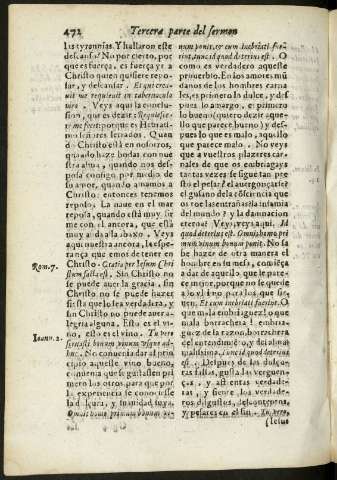 472 Tercera parte del sermon
las tyrannias. Y hallaron este
descanso? No por cierto, por
que es fuerça, es fuerça yr a
Christo quien quisiere repo-
sar, y descansar. Et qui crea-
uit me requieuit in tabernaculo
meo. Veys aqui la conclu-
sion, que es dezir: Requiesce-
re me fecit: porque es Hebrais-
mo señores letrados. Quan
do Christo està en nosotros,
quando haze bodas con nue
stra alma, quando nos des-
posa consigo por medio de
su amor, quando amamos a
Christo, entonces tenemos
reposo. La naue en el mar
reposa, quando està muy fir
me con el ancora, que està
muy asida abaxo. Veys
aqui nuestra ancora, la espe-
rança que emos de tener en
Christo. Gratia per Iesum Chri
stum facta est. Sin Christo no
se puede auer la gracia, sin
Christo no se puede hazer
fiesta que sea verdadera, y
sin Christo no puede auer a-
legria alguna. Esto es el vi-
no, esto es el vino. Tu vero
seruasti bonum vinum vsque ad-
huc. No conuenia dar al prin
cipio aqueste vino bueno,
conuenia que se guitassen pri
mero los otros para que por
la experiencia se conociesse
la dulçura, y suauidad suya.
Omnis homo primum bonum vi-
Rom. 7.
Ioann. 2.
num ponit, et cum inebriati fue-
rint, tunc id quod deterius est. O
como es verdadero aqueste
prouerbio. En los amores mū
danos de los hombres carna
les, es primero lo dulce, y des
pues lo amargo, el primero
lo bueno (quiero dezir aque-
llo que parece bueno) y des-
pues lo que es malo, aquello
que parece malo. No veys
que a vuestros plazeres car-
nales de que os embriagays
tantas vezes se sigue tan pre
sto el pesar? el auergonçarse?
el gusano de la cōsciencia que
os roe las entrañas? la infamia
del mundo? y la damnacion
eterna? Vey, veys aqui. Id
quod deterius est. Omnis homo pri
mum vinum bonum ponit. No sa
be hazer de otra manera el
hombre en su mesa, comiēça
a dar de aquello, que le pare-
ce mejor, porque no se queda
assi el vino para los que si-
guen. Et cum inebriati fuerint. O
que mala embriaguez! o que
mala borrachera! embria-
guez de la razon, borrachera
del entendimiento, y del alma!
quedissima, tunc id quod deterius
est. Despues de las dulçu-
ras falsas, gusta las verguen-
ças, y afrentas verdade-
ras, y siente los verdade-
ros disgustos, descontentos,
y pesares en el fin. Tu vero,
(Iesus